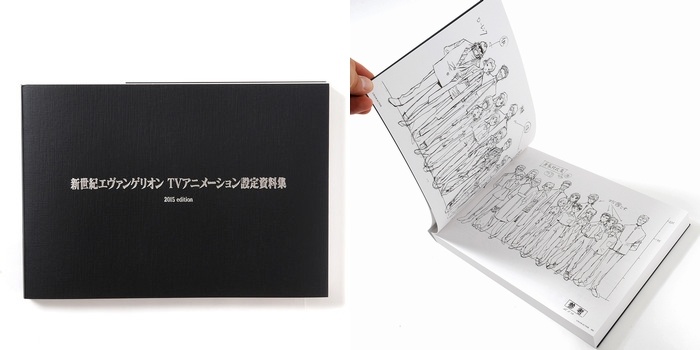 新世紀エヴァンゲリオン TVアニメーション設定資料集
2015 edition
参考